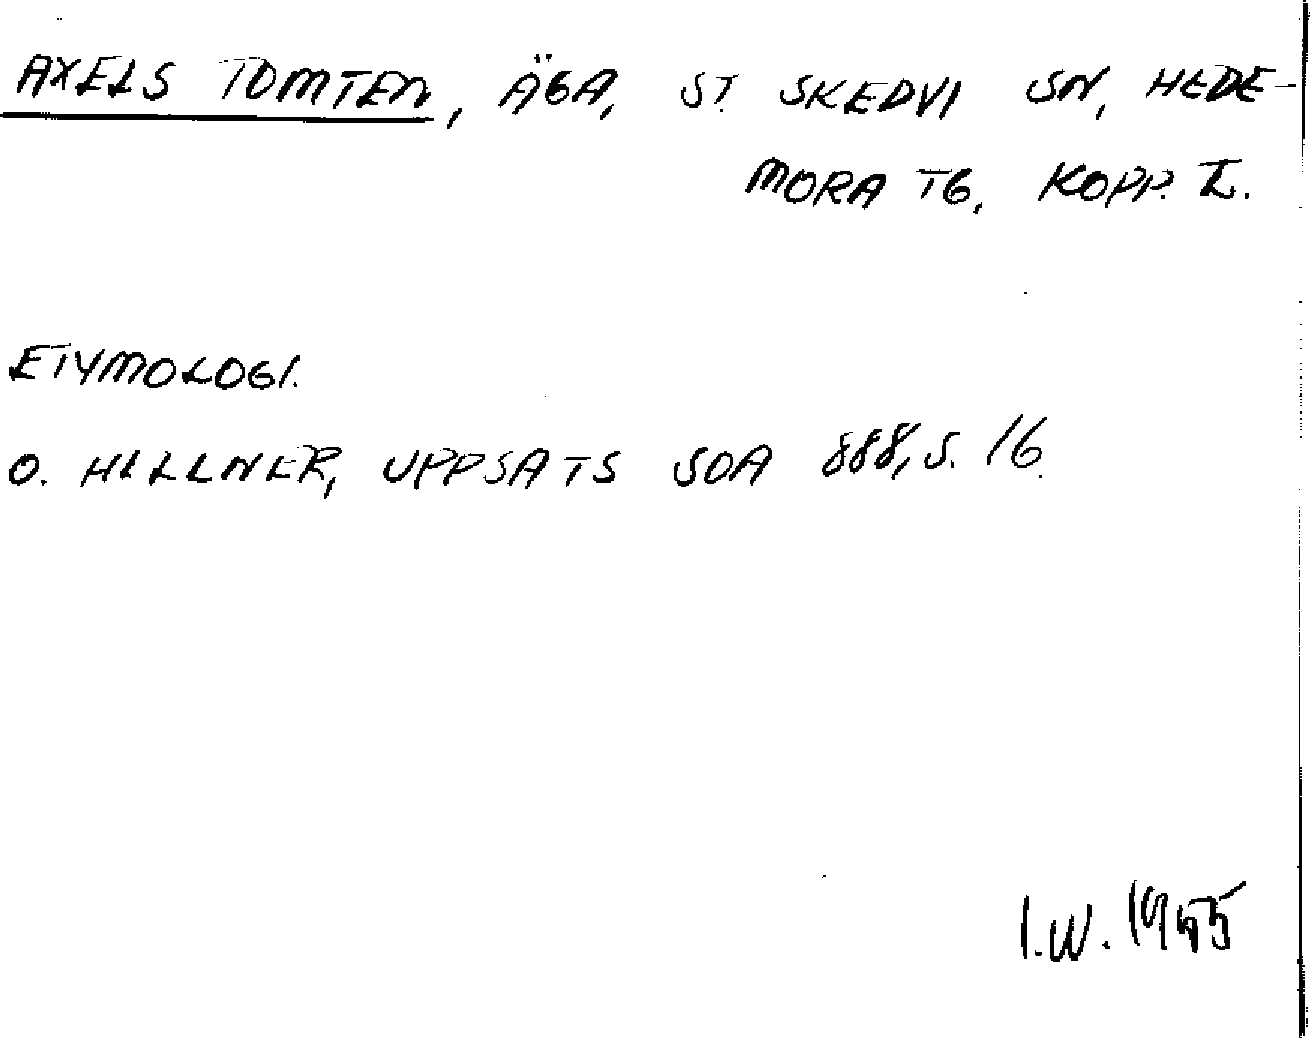 AXELS TOMTEN, ÄGA, ST. SKEDVI SN, HEDE-
MORA TG, KOPP. L.
ETYMOLOGI.
O. HILLNER, UPPSATS SOA 888, S. 16.
I.W. 1955